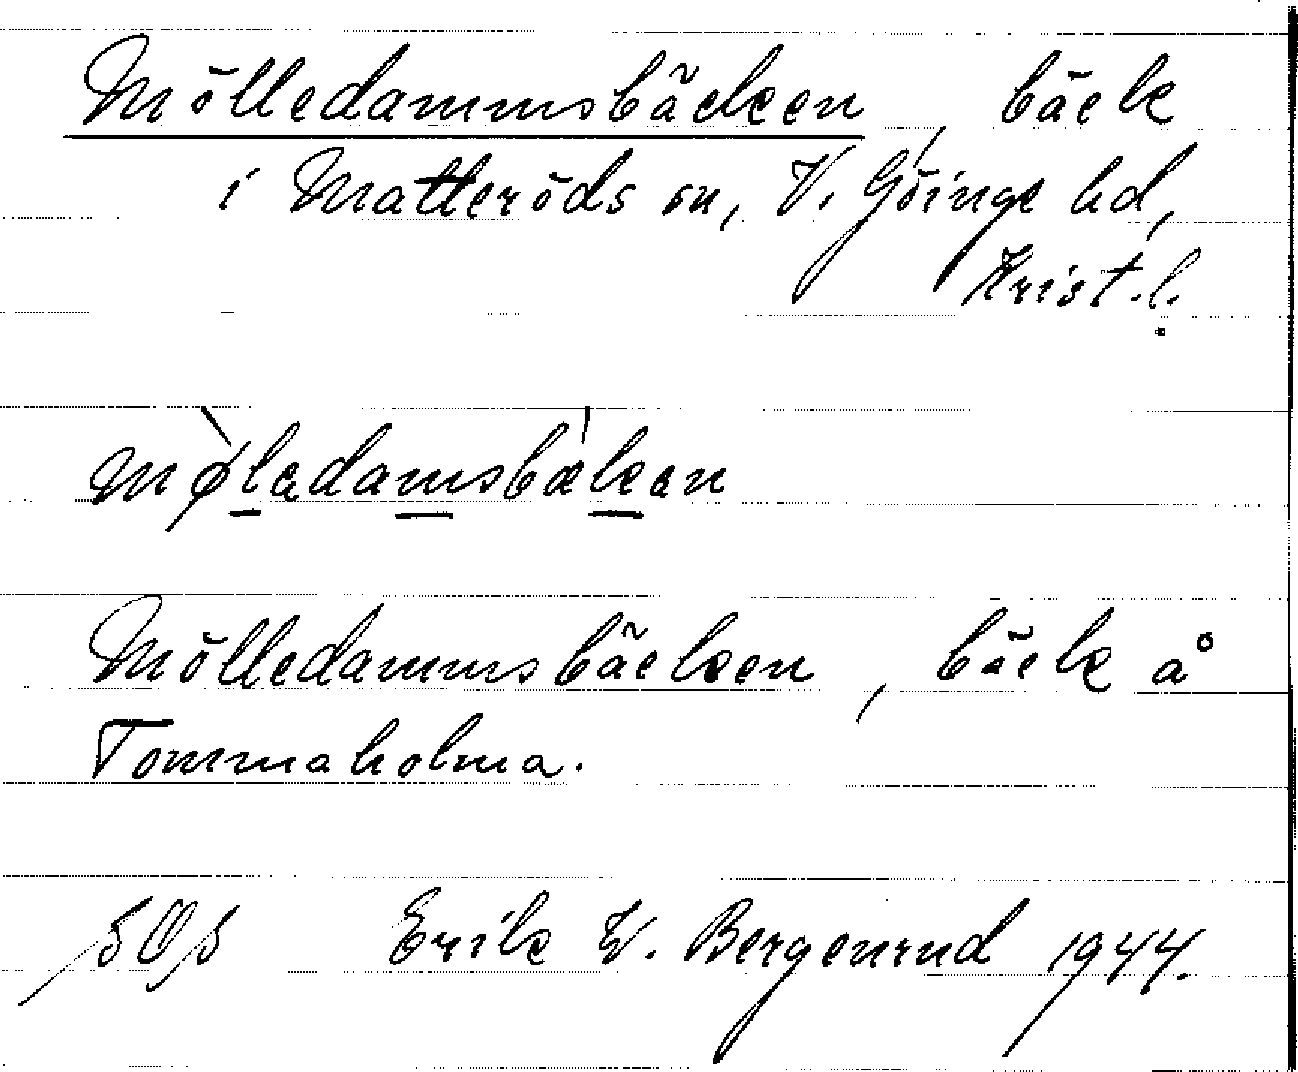 Mölledammsbäcken, bäck
i Matteröds sn, V. Göinge hd,
Krist. l.
mø̀lədamsbækən
Mölledammsbäcken, bäck å
Tommaholma.
Erik W. Bergenrud 1944.